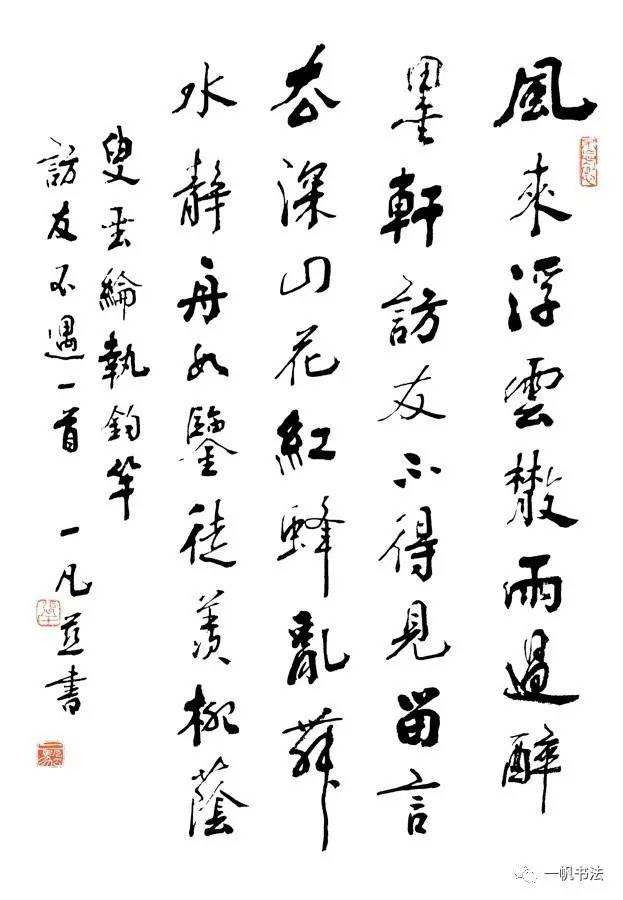 風來浮雲散雨過醉
墨軒訪友不得見留言
谷深山花紅蜂亂舞
水靜舟如鑒徒羨柳蔭
叟垂綸執釣竿
訪友不遇一首 一凡並書
一帆书法